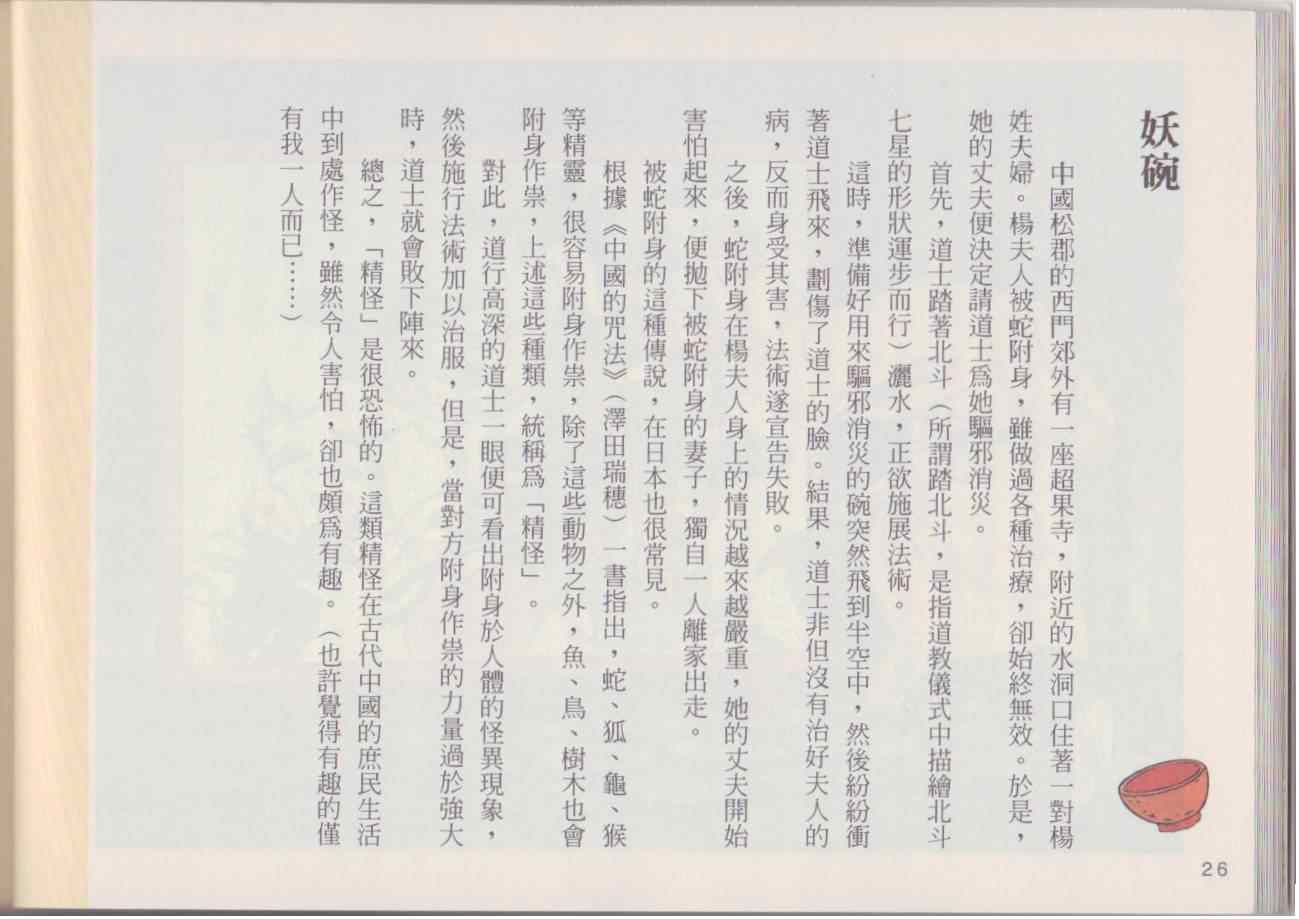 妖碗
中國松郡的西門郊外有一座超果寺，附近的水洞口住著一對楊
姓夫婦。楊夫人被蛇附身，雖做過各種治療，卻始終無效。於是，
她的丈夫便決定請道士爲她驅邪消災。
首先，道士踏著北斗（所謂踏北斗，是指道教儀式中描繪北斗
七星的形狀運步而行）灑水，正欲施展法術。
這時，準備好用來驅邪消災的碗突然飛到半空中，然後紛紛衝
著道士飛來，劃傷了道士的臉。結果，道士非但沒有治好夫人的
病，反而身受其害，法術遂宣告失敗。
之後，蛇附身在楊夫人身上的情況越來越嚴重，她的丈夫開始
害怕起來，便拋下被蛇附身的妻子，獨自一人離家出走。
被蛇附身的這種傳說，在日本也很常見。
根據《中國的咒法》（澤田瑞穗）一書指出，蛇、狐、龜、猴
等精靈，很容易附身作祟，除了這些動物之外，魚、鳥、樹木也會
附身作祟，上述這些種類，統稱爲「精怪」。
對此，道行高深的道士一眼便可看出附身於人體的怪異現象，
然後施行法術加以治服，但是，當對方附身作祟的力量過於強大
時，道士就會敗下陣來。
總之，「精怪」是很恐怖的。這類精怪在古代中國的庶民生活
中到處作怪，雖然令人害怕，卻也頗爲有趣。（也許覺得有趣的僅
有我一人而已……）
26